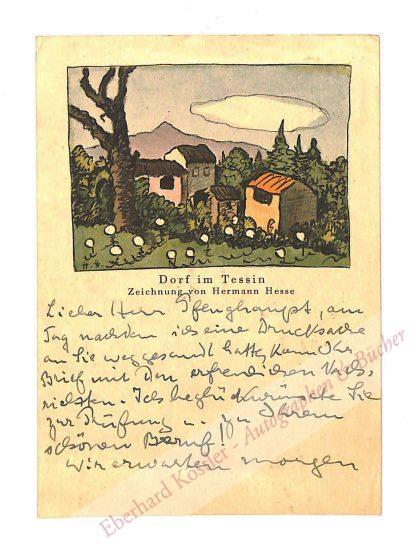 H. H.
Dorf im Tessin
Zeichnung von Hermann Hesse
Lieber Herr Pfenghaupt, am
Tag nachdem ich eine Drucksache
an Sie weggesandt hatte, kam Ihr
Brief mit den erfreulichen Nach-
richten. Ich beglückwünsche Sie
zur Prüfung u. zu Ihrem
schönen Beruf!
Wir erwarten morgen
Eberhard Köstler - Autographen & Bücher